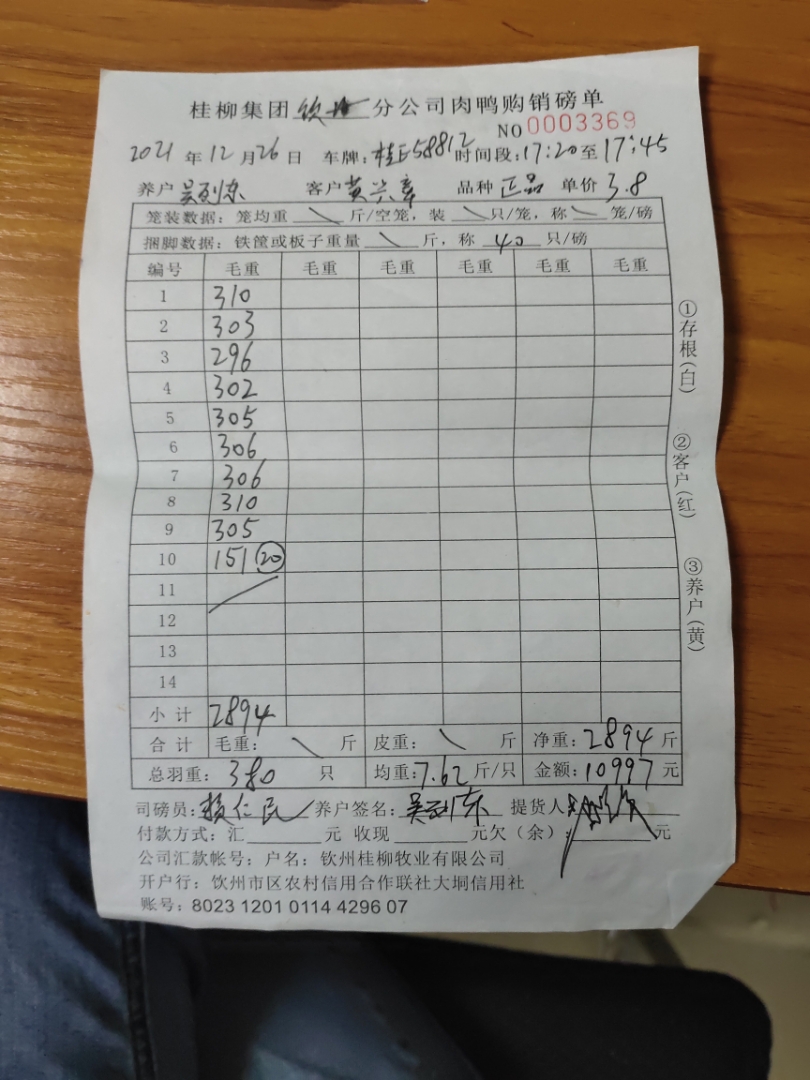 桂柳集团钦州分公司肉鸭购销磅单
NO 0003369
2021年12月26日 车牌:桂E58812 时间段:17:20至17:45
养户 吴列东 客户 黄兴章 品种 正品 单价 3.8
笼装数据: 笼均重 \ 斤/空笼, 装 \ 只/笼, 称 \ 笼/磅
捆脚数据: 铁筐或板子重量 \ 斤, 称 40 只/磅
编号 毛重 毛重 毛重 毛重 毛重 毛重
1 310
2 303
3 296
4 302
5 305
6 306
7 306
8 310
9 305
10 151 20
11
12
13
14
小计 2894
合计 毛重: \ 斤 皮重: \ 斤 净重:2894斤
总羽重: 380 只 均重:7.62斤/只 金额:10997元
司磅员:赖仁民 养户签名:吴列东 提货人:
付款方式:汇 元 收现 元欠(余): 元
公司汇款帐号: 户名: 钦州桂柳牧业有限公司
开户行: 钦州市区农村信用合作联社大垌信用社
账号: 8023 1201 0114 4296 07
①存根(白)
②客户(红)
③养户(黄)